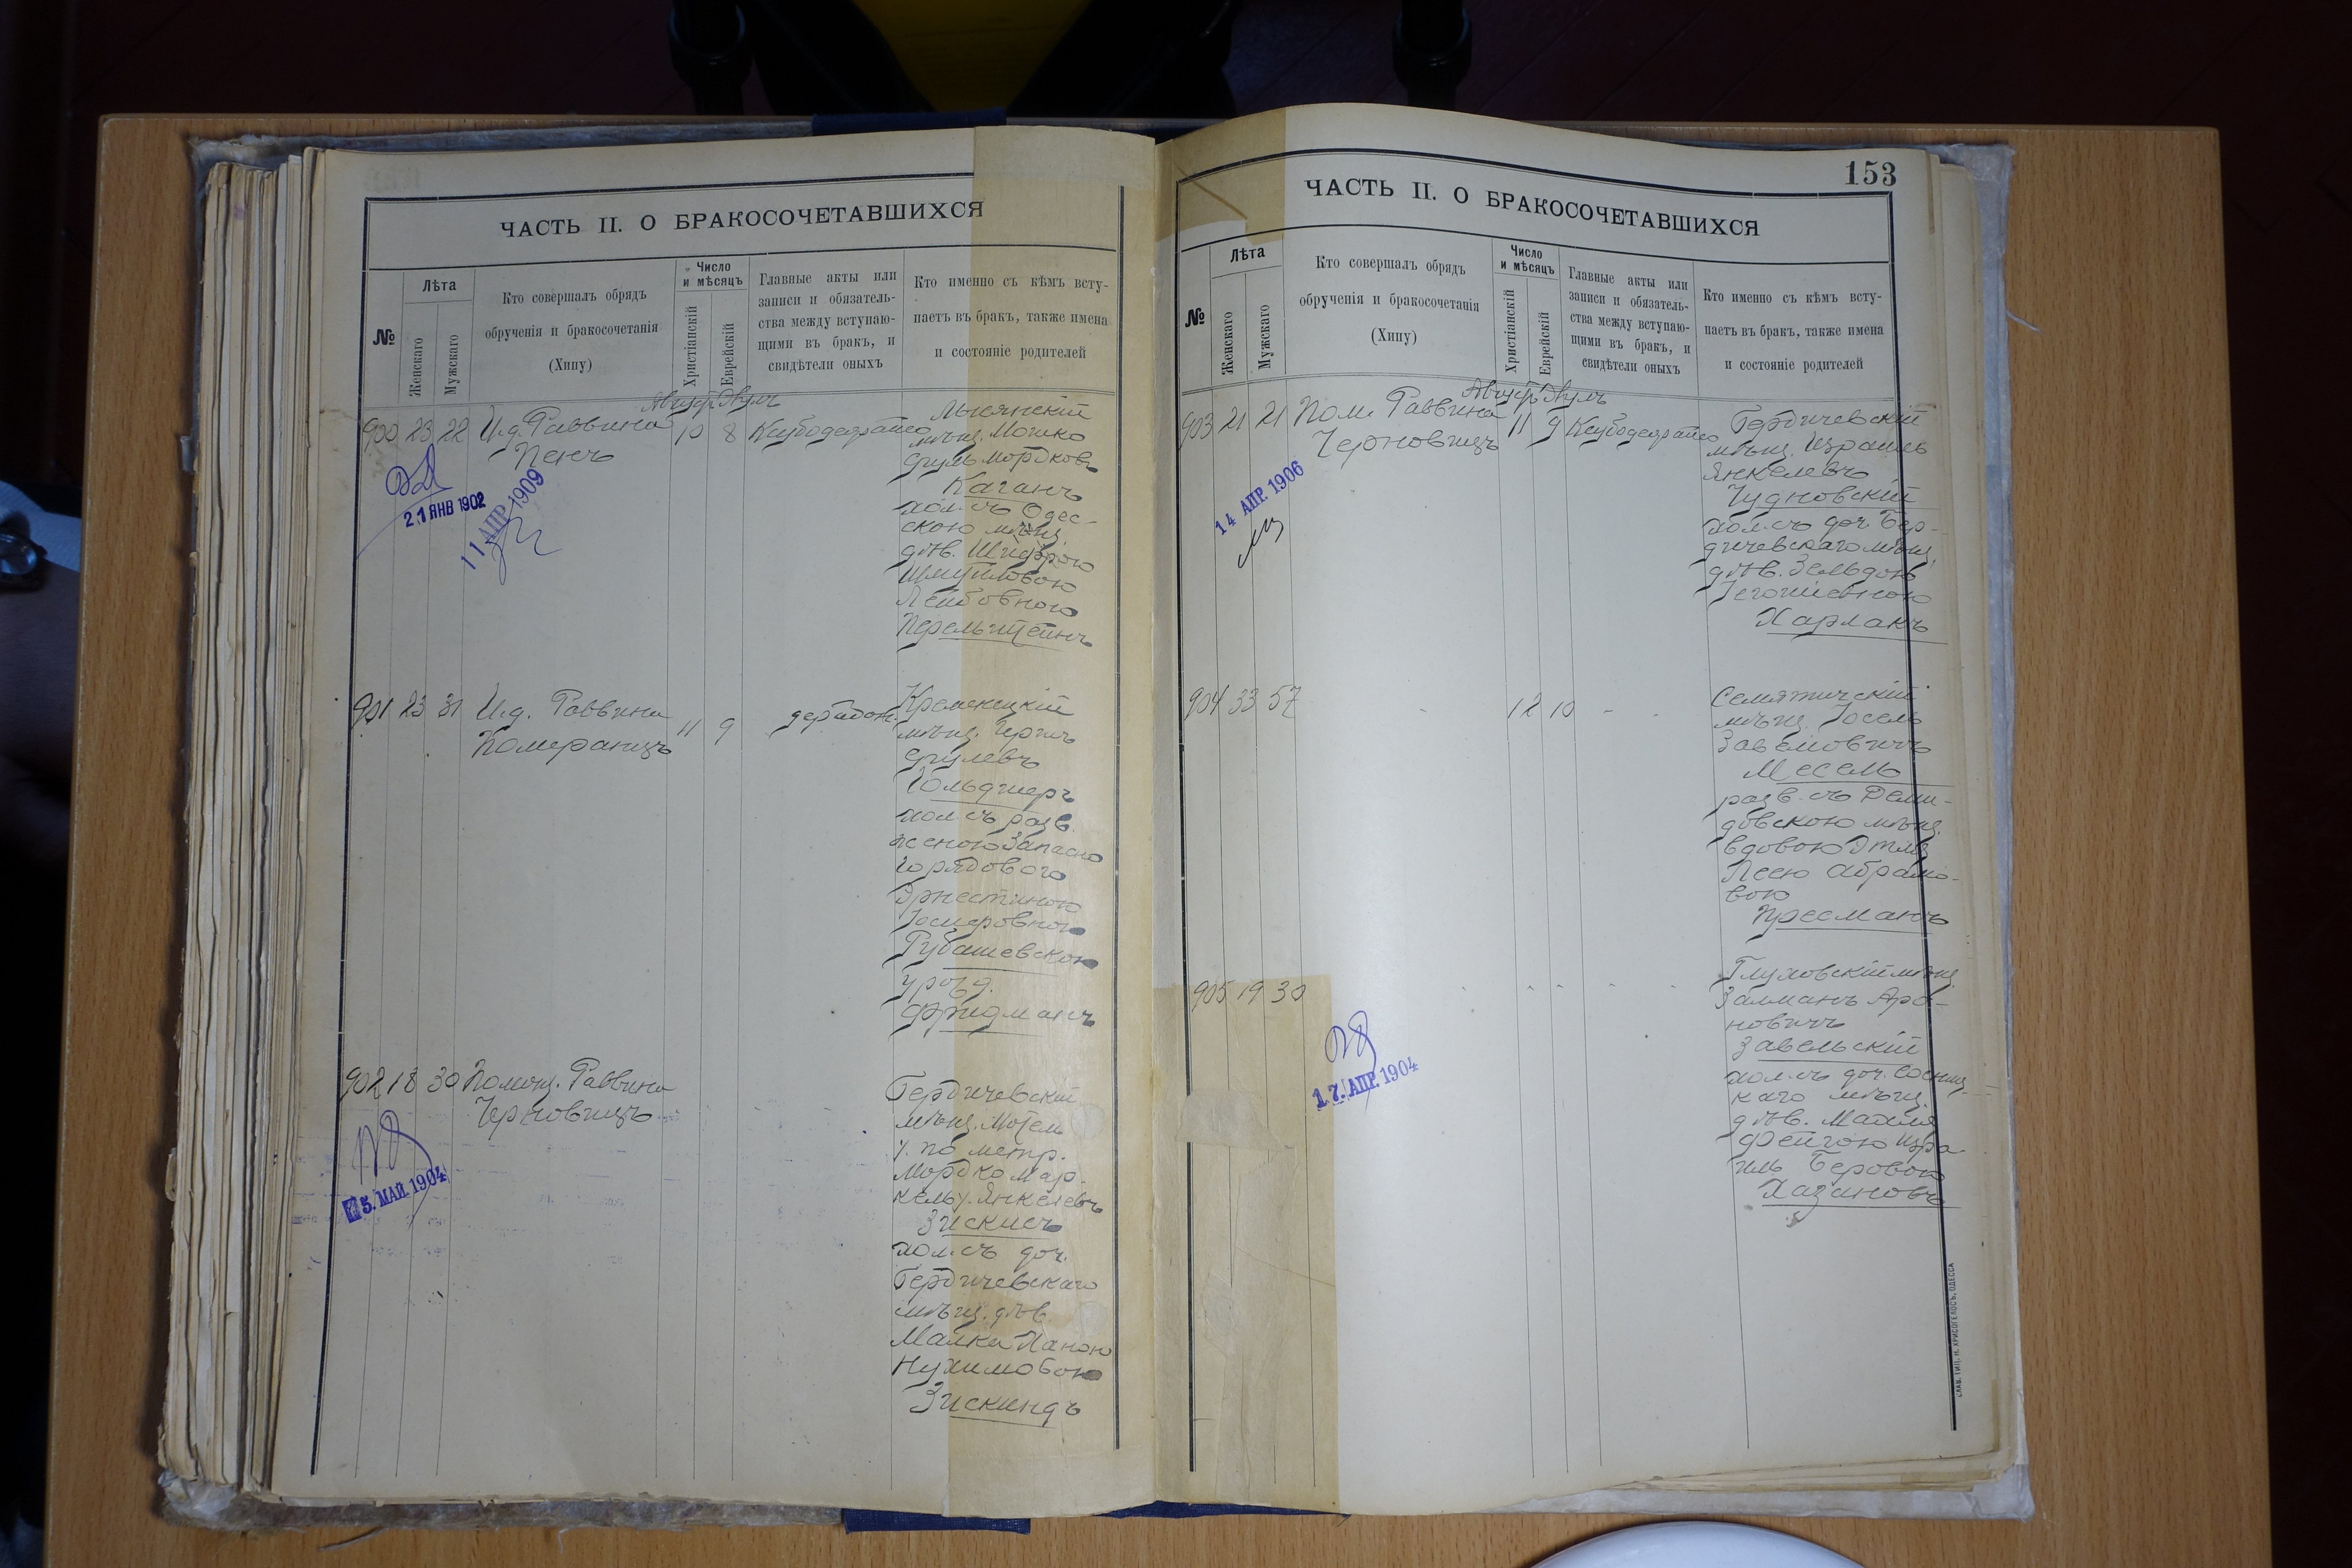 ЧАСТЬ II. О БРАКОСОЧЕТАВШИХСЯ
№
Лѣта
Женскаго
Мужскаго
Кто совершалъ обрядъ
обрученія и бракосочетанія
(Хипу)
Число
и мѣсяцъ
Христіанскій
Еврейскій
Главные акты или
записи и обязатель-
ства между вступаю-
щими въ бракъ, и
свидѣтели оныхъ
Кто именно съ кѣмъ всту-
паетъ въ бракъ, также имена
и состояніе родителей
900 23 22 И.д. Раввина 10 8
Пенъ
мѣщ. Мошко
Сруль Мордковъ
Каганъ
хол. съ Одес-
скою мѣщ.
дѣв. Шифрою
Шмуйловою
Лейбовною
Перельштейнъ
21 ЯНВ 1902
11 АПР. 1909
901 23 31 И.д. Раввина 11 9
Померанцъ
Кременецкій
мѣщ. Гершъ
Срулевъ
Гольдшеръ
хол. съ разв.
женою Запасно
го рядового
Эрнестиною
Іосифовною
Рубашевскою
урожд.
Фридманъ
902 18 30 Помощ. Раввина
Черновицъ
Бердичевскій
мѣщ. Мотель
/. по метр.
Мордко Мар-
кель/. Янкелевъ
Зискисъ
хол. съ доч.
Бердичевскаго
мѣщ. дѣв.
Малка Ханою
Нухимовою
Зискиндъ
5. МАЙ. 1904
153
ЧАСТЬ II. О БРАКОСОЧЕТАВШИХСЯ
№
Лѣта
Женскаго
Мужскаго
Кто совершалъ обрядъ
обрученія и бракосочетанія
(Хипу)
Число
и мѣсяцъ
Христіанскій
Еврейскій
Главные акты или
записи и обязатель-
ства между вступаю-
щими въ бракъ, и
свидѣтели оныхъ
Кто именно съ кѣмъ всту-
паетъ въ бракъ, также имена
и состояніе родителей
903 21 21 Пом. Раввина 11 9
Черновицъ
Бердичевскій
мѣщ. Израиль
Янкелевъ
Чудновскій
хол. съ доч. Бер-
дичевскаго мѣщ.
дѣв. Зельдою
Харлакъ
14 АПР. 1906
904 33 57 12 10
Семятичскій
мѣщ. Іосель
Завеловичъ
Месель
разв. съ Деми-
довскою мѣщ.
вдовою Этля
Песею Абрамо-
вою
Пресманъ
905 19 30
Глуховскій мѣщ.
Залманъ Аро-
новичъ
Завельскій
хол. съ доч. Сосниц-
каго мѣщ.
дѣв.
Фейгою Изра-
иль Беровою
Хазановъ
17. АПР. 1904
СЛАВ. ТИП. Н. ХРИСОГЕЛОСЪ, ОДЕССА